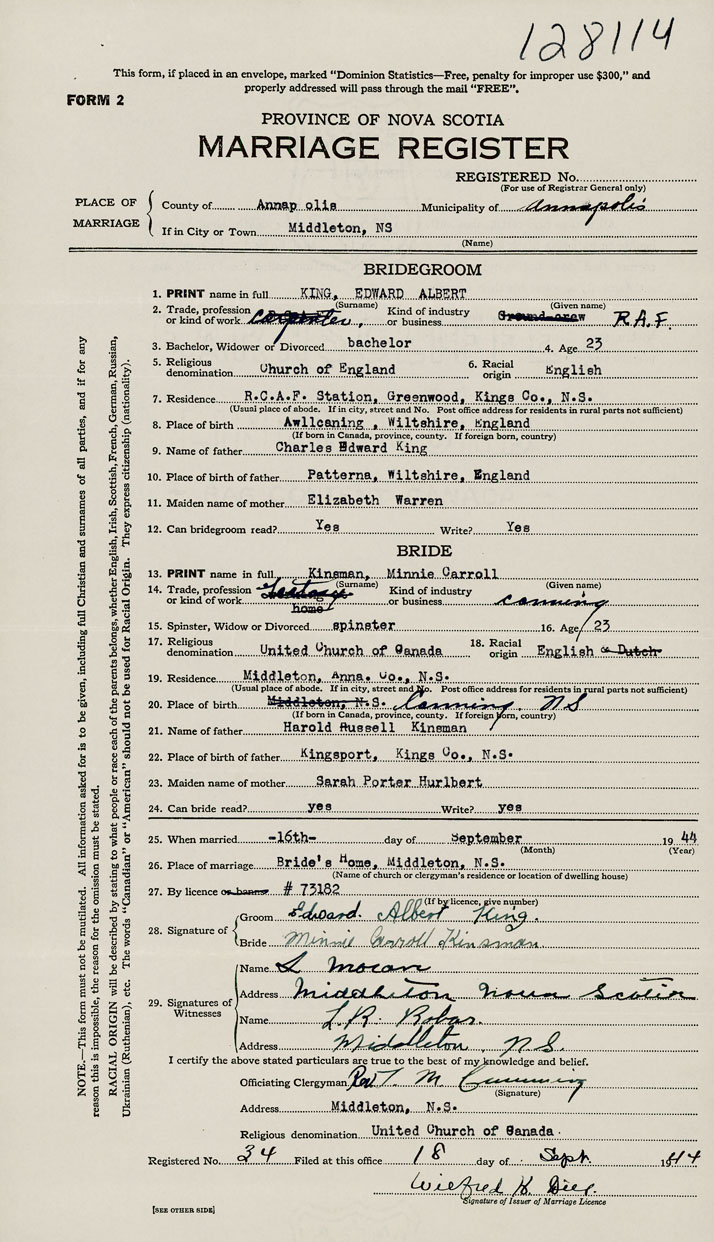 128114
This form, if placed in an envelope, marked "Dominion Statistics—Free, penalty for improper use $300," and
properly addressed will pass through the mail "FREE".
FORM 2
PROVINCE OF NOVA SCOTIA
MARRIAGE REGISTER
REGISTERED No.
(For use of Registrar General only)
PLACE OF MARRIAGE
County of Annap olis Municipality of Annapolis
If in City or Town Middleton, NS
(Name)
BRIDEGROOM
1. PRINT name in full KING, EDWARD ALBERT
(Surname) (Given name)
2. Trade, profession or kind of work carpenter, Kind of industry or business Ground crew R.A.F.
3. Bachelor, Widower or Divorced bachelor 4. Age 23
5. Religious denomination Church of England 6. Racial origin English
7. Residence R.C.A.F. Station, Greenwood, Kings Co., N.S.
(Usual place of abode. If in city, street and No. Post office address for residents in rural parts not sufficient)
8. Place of birth Awllcaning , Wiltshire, England
(If born in Canada, province, county. If foreign born, country)
9. Name of father Charles Edward King
10. Place of birth of father Patterna, Wiltshire, England
11. Maiden name of mother Elizabeth Warren
12. Can bridegroom read? Yes Write? Yes
BRIDE
13. PRINT name in full Kinsman, Minnie Carroll
(Surname) (Given name)
14. Trade, profession or kind of work home Kind of industry or business canning
15. Spinster, Widow or Divorced spinster 16. Age 23
17. Religious denomination United Church of Canada 18. Racial origin English & Dutch
19. Residence Middleton, Anna. Co., N.S.
(Usual place of abode. If in city, street and No. Post office address for residents in rural parts not sufficient)
20. Place of birth Middleton, N.S. Canning, N S
(If born in Canada, province, county. If foreign born, country)
21. Name of father Harold Russell Kinsman
22. Place of birth of father Kingsport, Kings Co., N.S.
23. Maiden name of mother Sarah Porter Hurlbert
24. Can bride read? yes Write? yes
25. When married -16th- day of September 19 44
(Month) (Year)
26. Place of marriage Bride's Home, Middleton, N.S.
(Name of church or clergyman's residence or location of dwelling house)
27. By licence or banns # 73182
(If by licence, give number)
28. Signature of
Groom Edward Albert King.
Bride Minnie Carroll Kinsman
29. Signatures of Witnesses
Name L Mocan
Address Middleton Nova Scotia
Name L.R. Robar.
Address Middleton, N.S.
I certify the above stated particulars are true to the best of my knowledge and belief.
Officiating Clergyman Rev T. M Cumming
(Signature)
Address Middleton, N.S.
Religious denomination United Church of Canada.
Registered No. 34 Filed at this office 18 day of Sept. 1944
Wilfred K.
Signature of Issuer of Marriage Licence
[SEE OTHER SIDE]
NOTE.—This form must not be mutilated. All information asked for is to be given, including full Christian and surnames of all parties, and if for any
reason this is impossible, the reason for the omission must be stated.
RACIAL ORIGIN will be described by stating to what people or race each of the parents belongs, whether English, Irish, Scottish, French, German, Russian,
Ukrainian (Ruthenian), etc. The words "Canadian" or "American" should not be used for Racial Origin. They express citizenship (nationality).